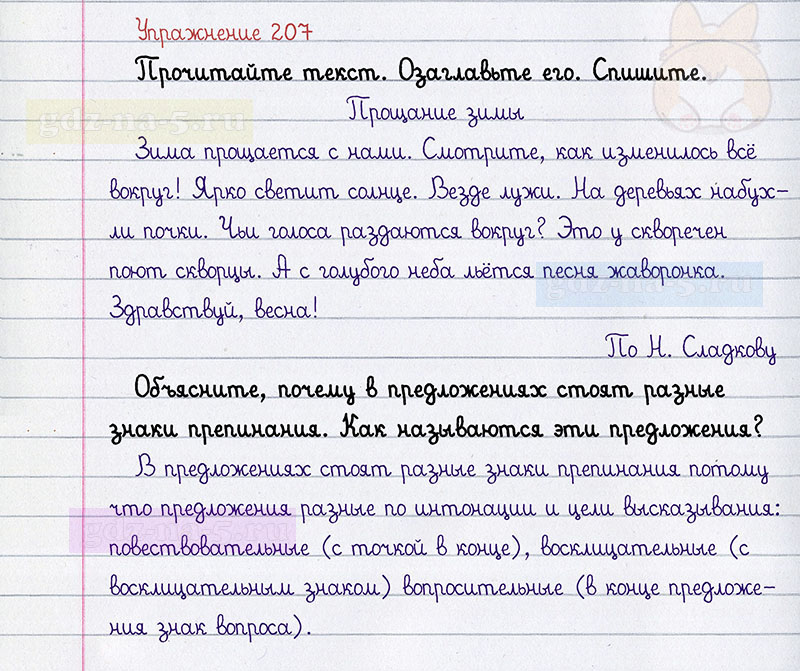 Упражнение 207
Прочитайте текст. Озаглавьте его. Спишите.
gdz-na-5.ru
Прощание зимы
Зима прощается с нами. Смотрите, как изменилось всё
вокруг! Ярко светит солнце. Везде лужи. На деревьях набух-
ли почки. Чьи голоса раздаются вокруг? Это у скворечен
поют скворцы. А с голубого неба льётся песня жаворонка.
gdz-na-5.ru
Здравствуй, весна!
По Н. Сладкову
Объясните, почему в предложениях стоят разные
знаки препинания. Как называются эти предложения?
В предложениях стоят разные знаки препинания потому
что предложения разные по интонации и цели высказывания:
gdz-na-5.ru
повествовательные (с точкой в конце), восклицательные (с
восклицательным знаком) вопросительные (в конце предложе-
ния знак вопроса).